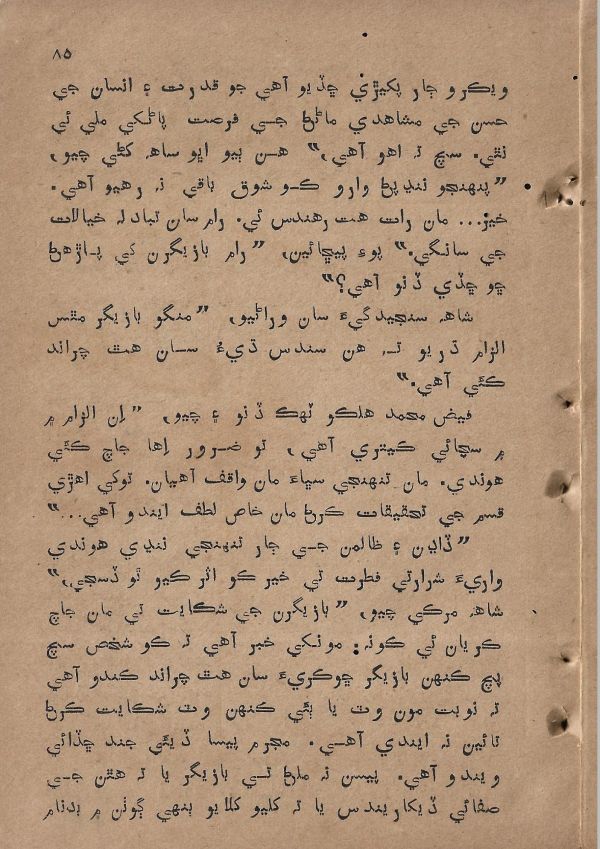 ۸۵
ويڪرو ڄار پکيڙي ڇڏيو آهي جو قدرت ۽ انسان جي
حسن جي مشاهدي ماڻڻ جي فرصت پاڻکي ملي ئي
نٿي. سچ تہ اهو آهي،“ هن ٻيو اڀو ساهہ کڻي چيو،
”پنهنجو ننڍپڻ وارو ڪو شوق باقي نہ رهيو آهي.
خير... مان رات هت رهندس ئي. رام سان تبادلہ خيالات
جي سانگي.“ پوءِ پڇائين، ”رام بازيگرن کي پاڙهڻ
ڇو ڇڏي ڏنو آهي؟“
شاهہ سنجيدگيءَ سان وراڻيو، ”منگو بازيگر مٿس
الزام ڌريو تہ هن سندس ڌيءُ سان هٿ چراند
ڪئي آهي.“
فيض محمد هلڪو ٽهڪ ڏنو ۽ چيو، ”اِن الزام ۾
۾ سچائي ڪيتري آهي، تو ضرور اِها جاچ ڪئي
هوندي. مان تنهنجي سڀاءَ مان واقف آهيان. توکي اهڙي
قسم جي تحقيقات ڪرڻ مان خاص لطف ايندو آهي...“
”ڏاڍن ۽ ظالمن جي ڄار تنهنجي ننڍي هوندي
واريءَ شرارتي فطرت تي خير ڪو اثر ڪيو ٿو ڏسجي،“
شاهہ مرڪي چيو، ”بازيگرن جي شڪايت تي مان جاچ
ڪريان ئي ڪونہ: مونکي خبر آهي تہ ڪو شخص سچ
پچ ڪنهن بازيگر ڇوڪريءَ سان هٿ چراند ڪندو آهي
تہ نوبت مون وٽ يا ٻئي ڪنهن وٽ شڪايت ڪرڻ
تائين نہ ايندي آهي. مجرم پيسا ڏيئي جند ڇڏائي
ويندو آهي. پيسن نہ ملڻ تي بازيگر يا تہ هٿن جي
صفائي ڏيکاريندس يا تہ کليو کلايو ٻنهي ڳوٺن ۾ بدنام